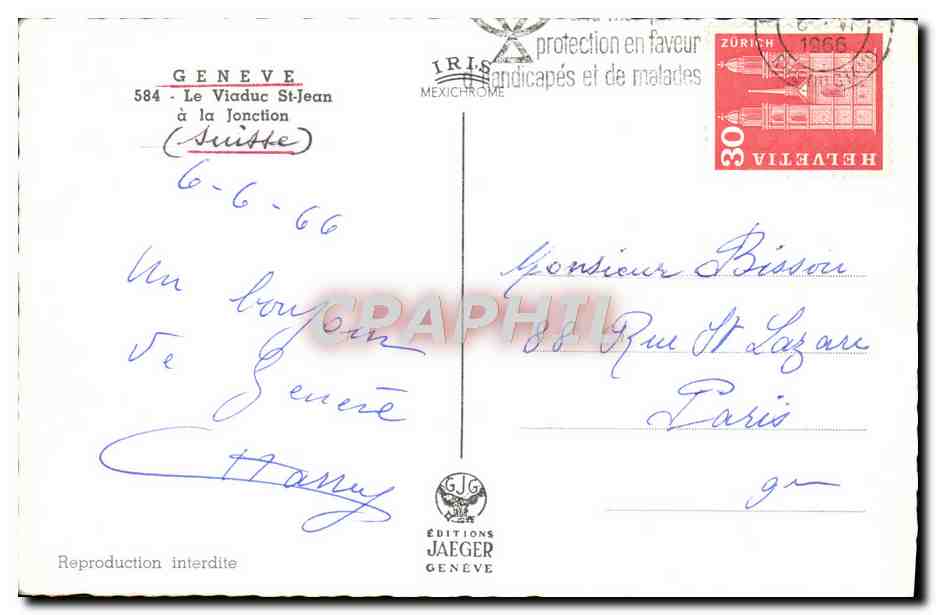 GENEVE
584 - Le Viaduc St-Jean
à la Jonction
(Suisse)
6-6-66
Un bonjour
de Genève
Harry
Reproduction interdite
IRIS
MEXICHROME
protection en faveur
handicapés et de malades
1966
ZÜRICH
30
HELVETIA
Monsieur Bisson
88 Rue St Lazare
Paris
9me
CPAPHIL
GJG
ÉDITIONS
JAEGER
GENÈVE